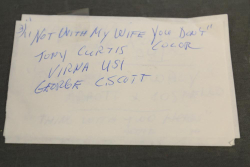 3/11 "Not With My Wife You Don't"
Color
Tony Curtis
Virna Lisi
George C Scott